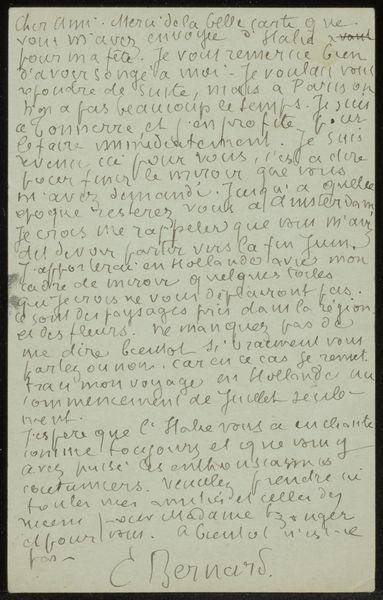 Cher ami. Merci de la belle carte que
vous m'avez envoyée d'Italie
pour ma fête. Je vous remercie bien
d'avoir songé à moi. Je voulais vous
répondre de suite, mais à Paris on
n'a pas beaucoup le temps. Je suis
à Tonnerre et j'en profite pour
le faire immédiatement. Je suis
revenu ici pour vous, c'est à dire
pour finir le miroir que vous
m'avez demandé. Jusqu'à quelle
époque resterez vous à Amsterdam
Je crois me rappeler que vous m'avi
dit devoir partir vers la fin Juin.
J'apporterai en Hollande avec mon
cadre de miroir quelques toiles
que je crois ne vous déplairont pas.
ce sont des paysages pris dans la région
et des fleurs. ne manquez pas de
me dire bientot si vraiment vous
partez ou non. car en ce cas je remet
trai mon voyage en Hollande au
commencement de Juillet seule-
ment.
J'espère que l'Italie vous a enchanté
comme toujours et que vous y
avez puisé les enthousiasmes
coutumiers. veuillez prendre ici
toutes mes amitiés et celles des
miens pour Madame Bonger
et pour vous. a bientot n'est-ce
pas—
E Bernard.